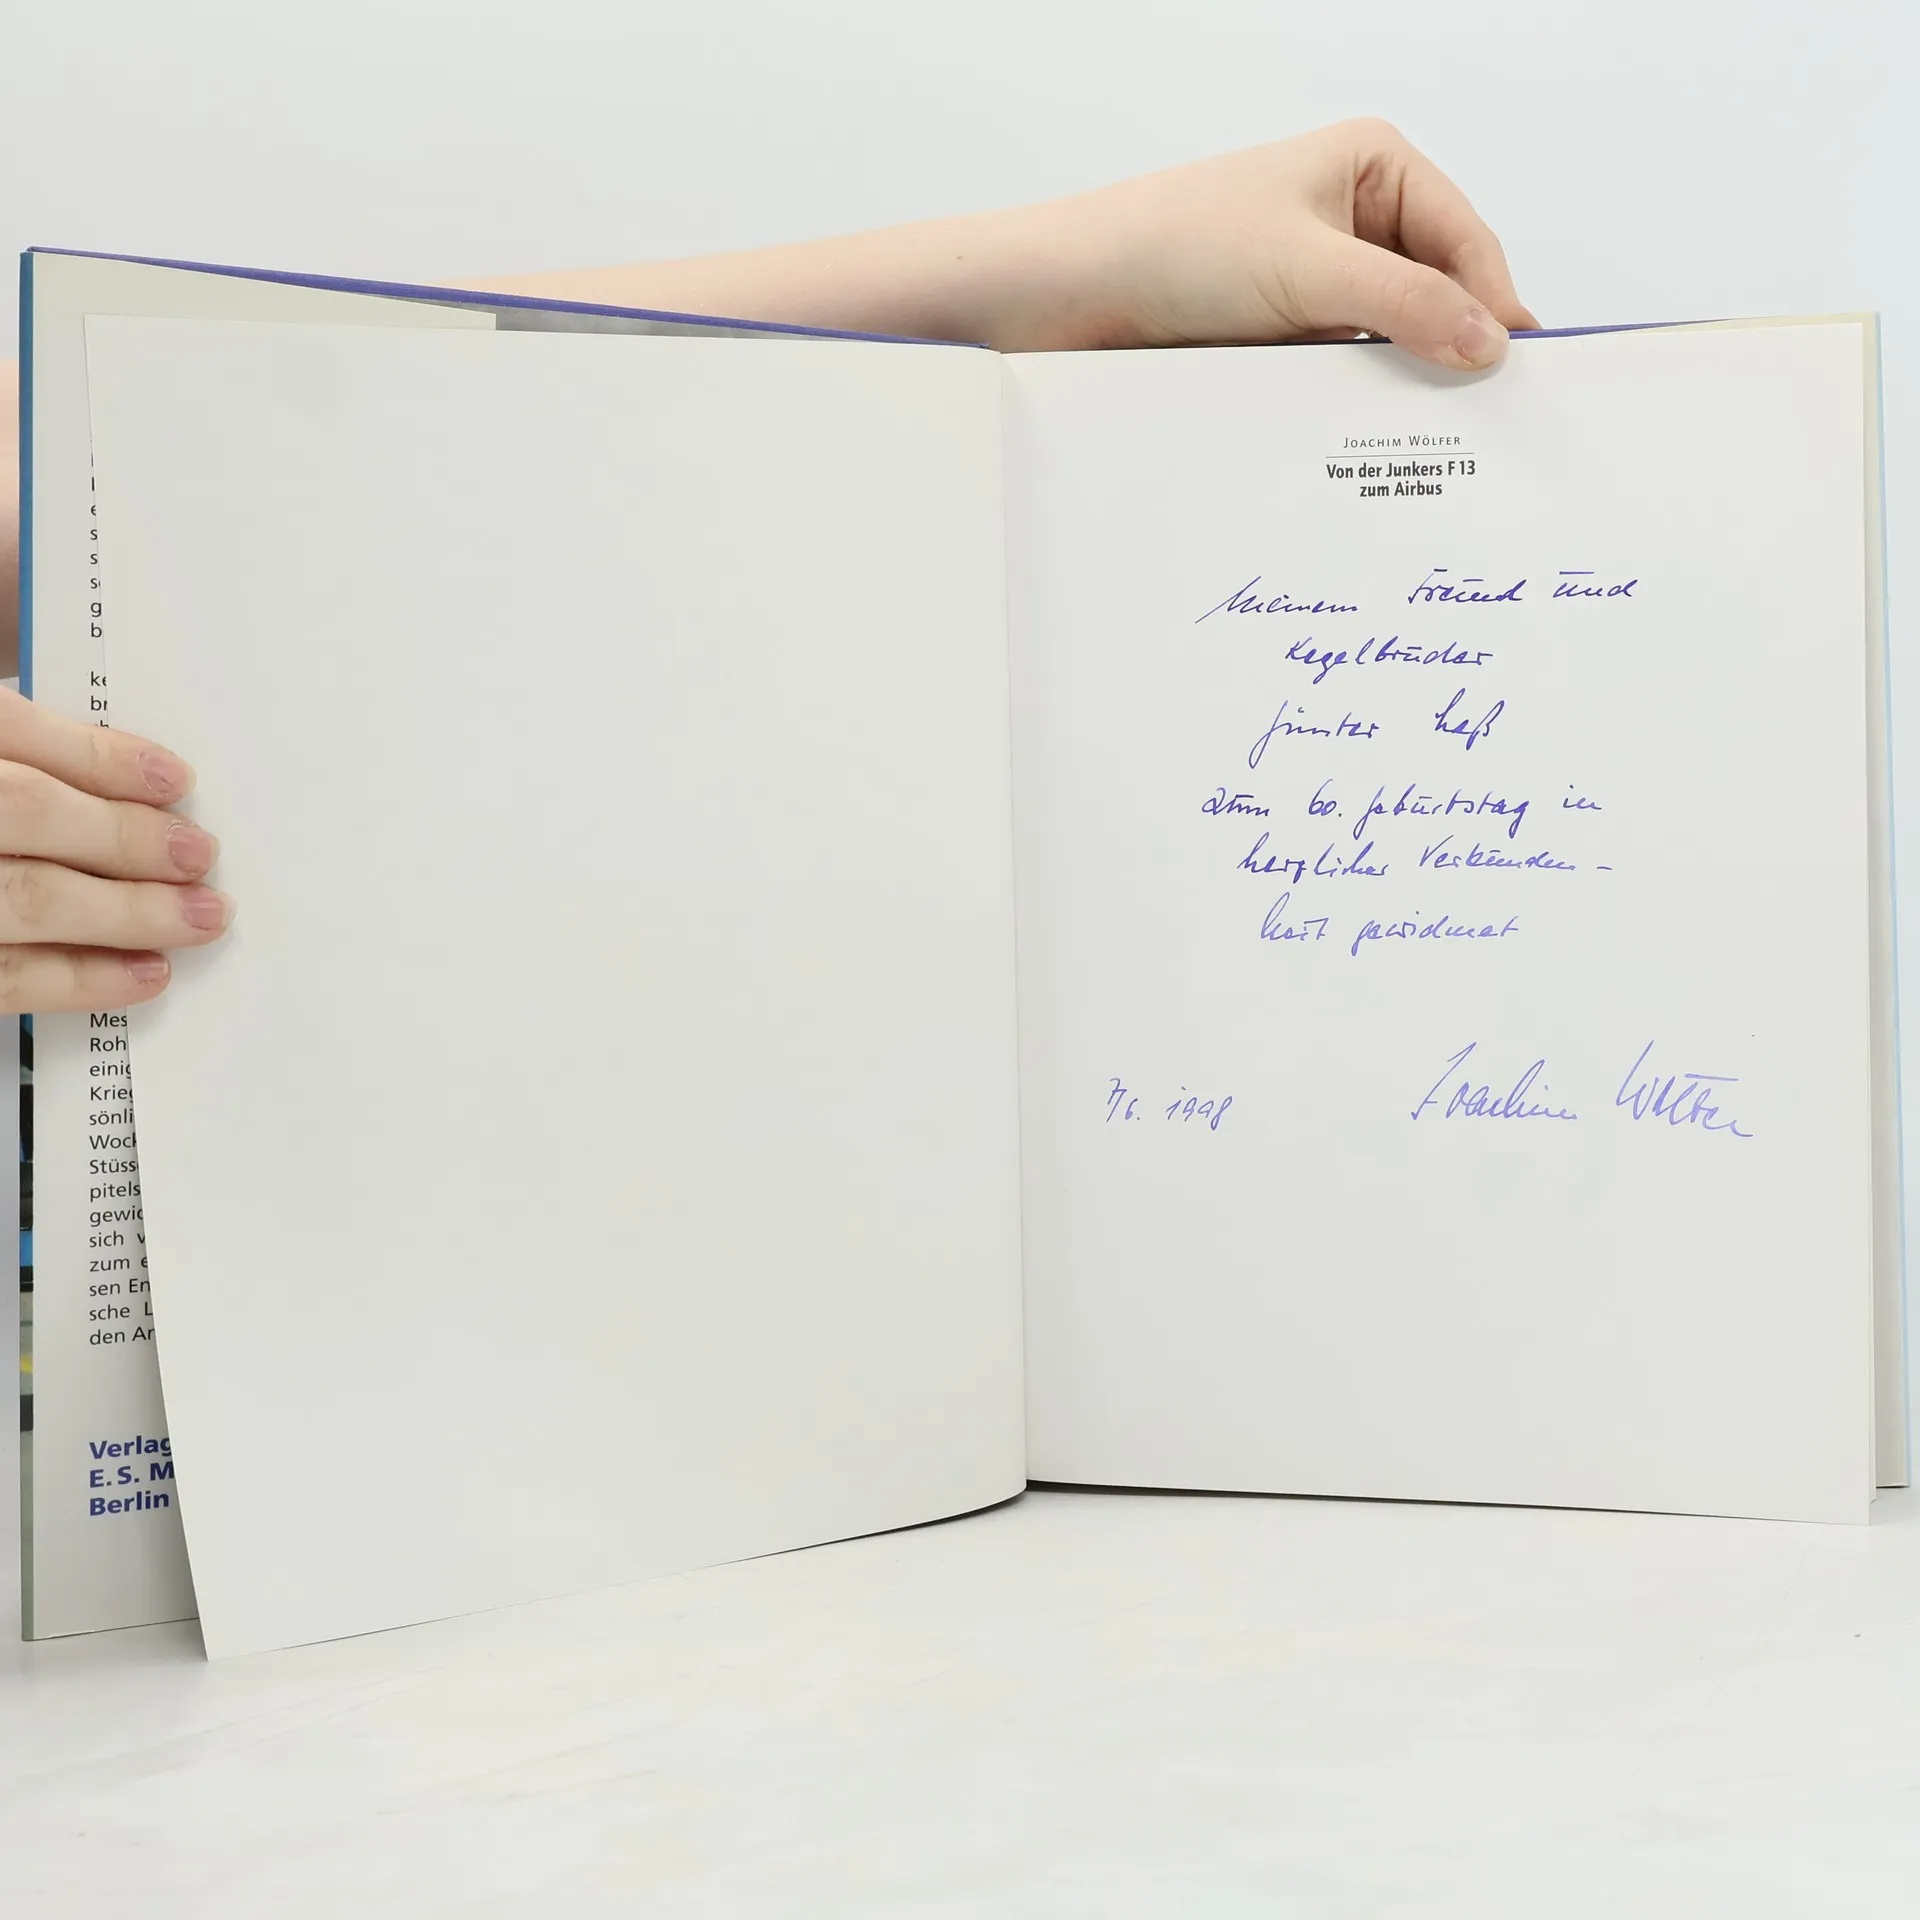 e
s
s
g
b
ke
br
Mes
Roh
einig
Krieg
sönli
Woch
Stüss
pitels
gewid
sich v
zum e
sen En
sche L
den Ar
Verlag
E. S. M
Berlin
JOACHIM WÖLFER
Von der Junkers F 13
zum Airbus
Meinem Freund und
Kegelbruder
Günter Haß
zum 60. Geburtstag in
herzlicher Verbunden-
heit gewidmet
7/6. 1998
Joachim Wölfer